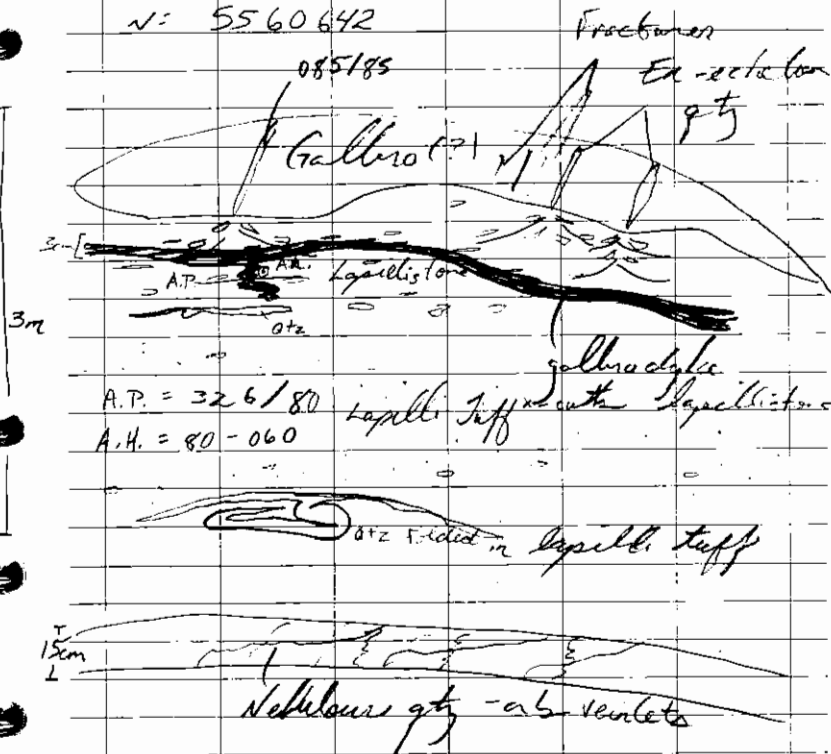 N: 5560642
Fractures
085/85
qtz
Gabbro (?)
A.P.
A.H.
Lapillistone
3m
Qtz
gabbro dyke
A.P. = 326/80
Lapilli Tuff
x-cuts lapillistone
A.H. = 80-060
Qtz Folded in lapilli tuff
15cm
Nebulous qtz-ab veinlets